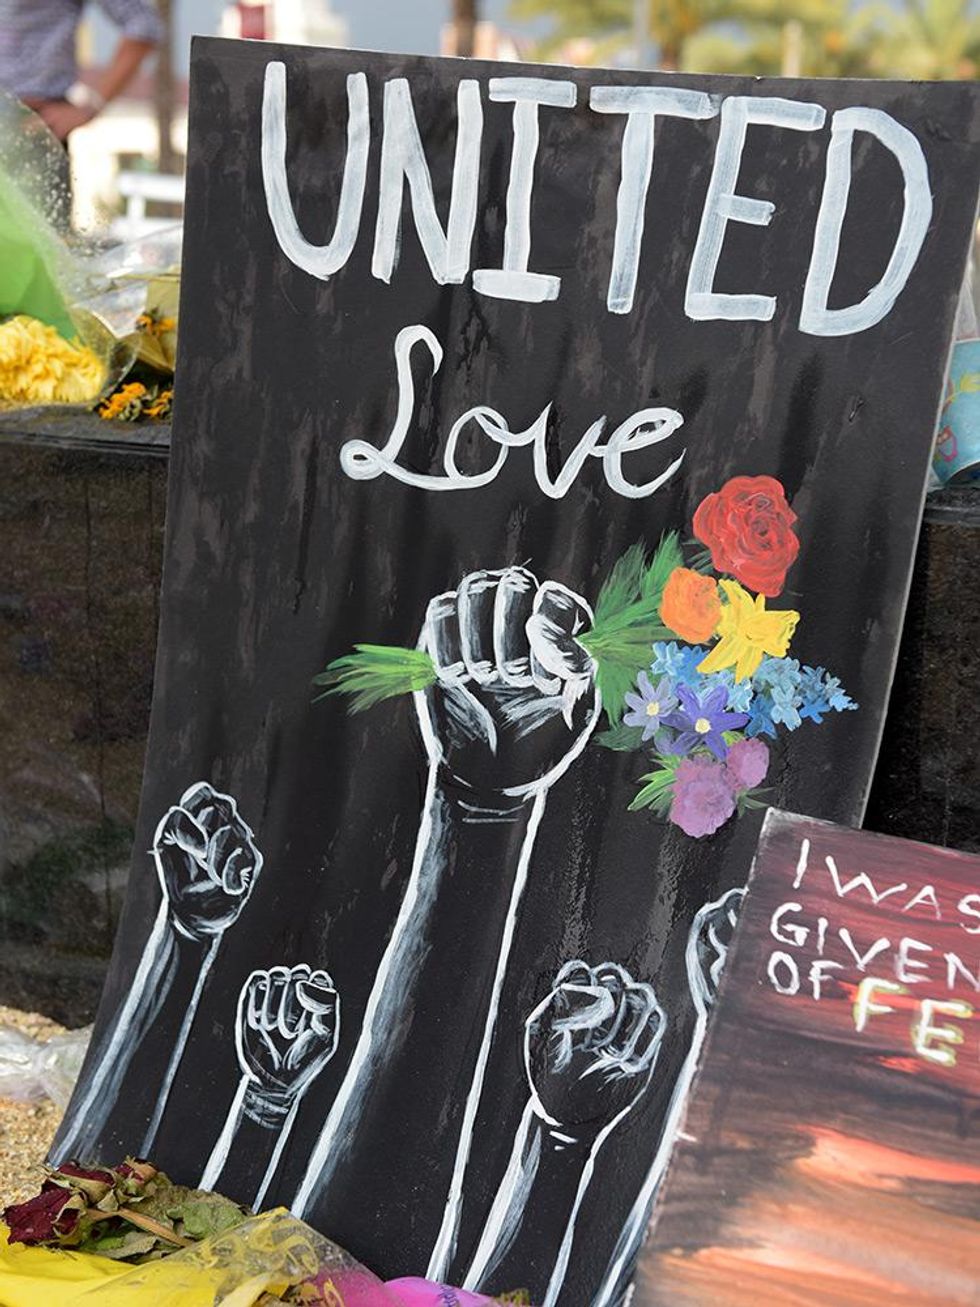 UNITED
Love
I WAS
GIVEN
OF FE